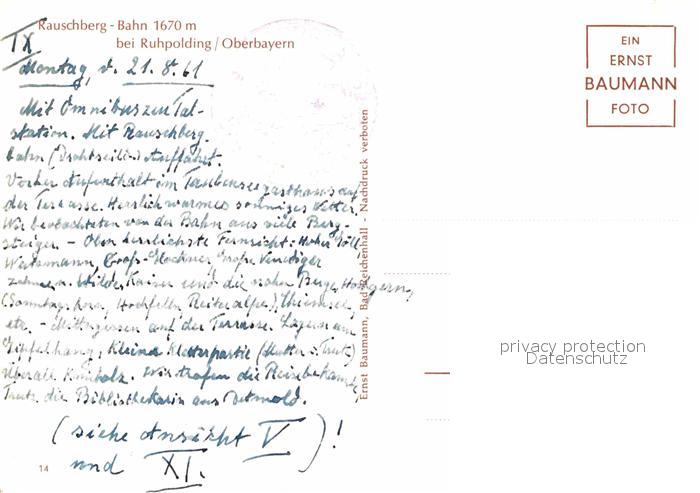 Rauschberg - Bahn 1670 m
bei Ruhpolding / Oberbayern
IX
Montag, d. 21. 8. 61
Mit Omnibus zur Tal-
station. Mit Rauschberg-
bahn (Drahtseilb.) Auffahrt.
Vorher Aufenthalt im Taubenseegasthaus auf
der Terrasse. Herrlich warmes sonniges Wetter.
Wir beobachteten von der Bahn aus viele Berg-
steiger. - Oben herrlichste Fernsicht: Hoher Göll
Watzmann, Groß-Glockner Große Venediger
Wilder Kaiser und die nahen Berge, Hörgern,
(Sonntagshorn, Hochfelln Reiteralpe), Chiemsee,
etc. - Mittagessen auf der Terrasse. Lagern am
Gipfelhang, kleine Kletterpartie (Mutter u. Traute)
Überall Krüholz. Wir trafen die Reisebekannte
Traute, die Bibliothekarin aus Detmold.
(siehe Ansicht V )!
und XI.
14
Ernst Baumann, Bad Reichenhall - Nachdruck verboten
EIN
ERNST
BAUMANN
FOTO
privacy protection
Datenschutz